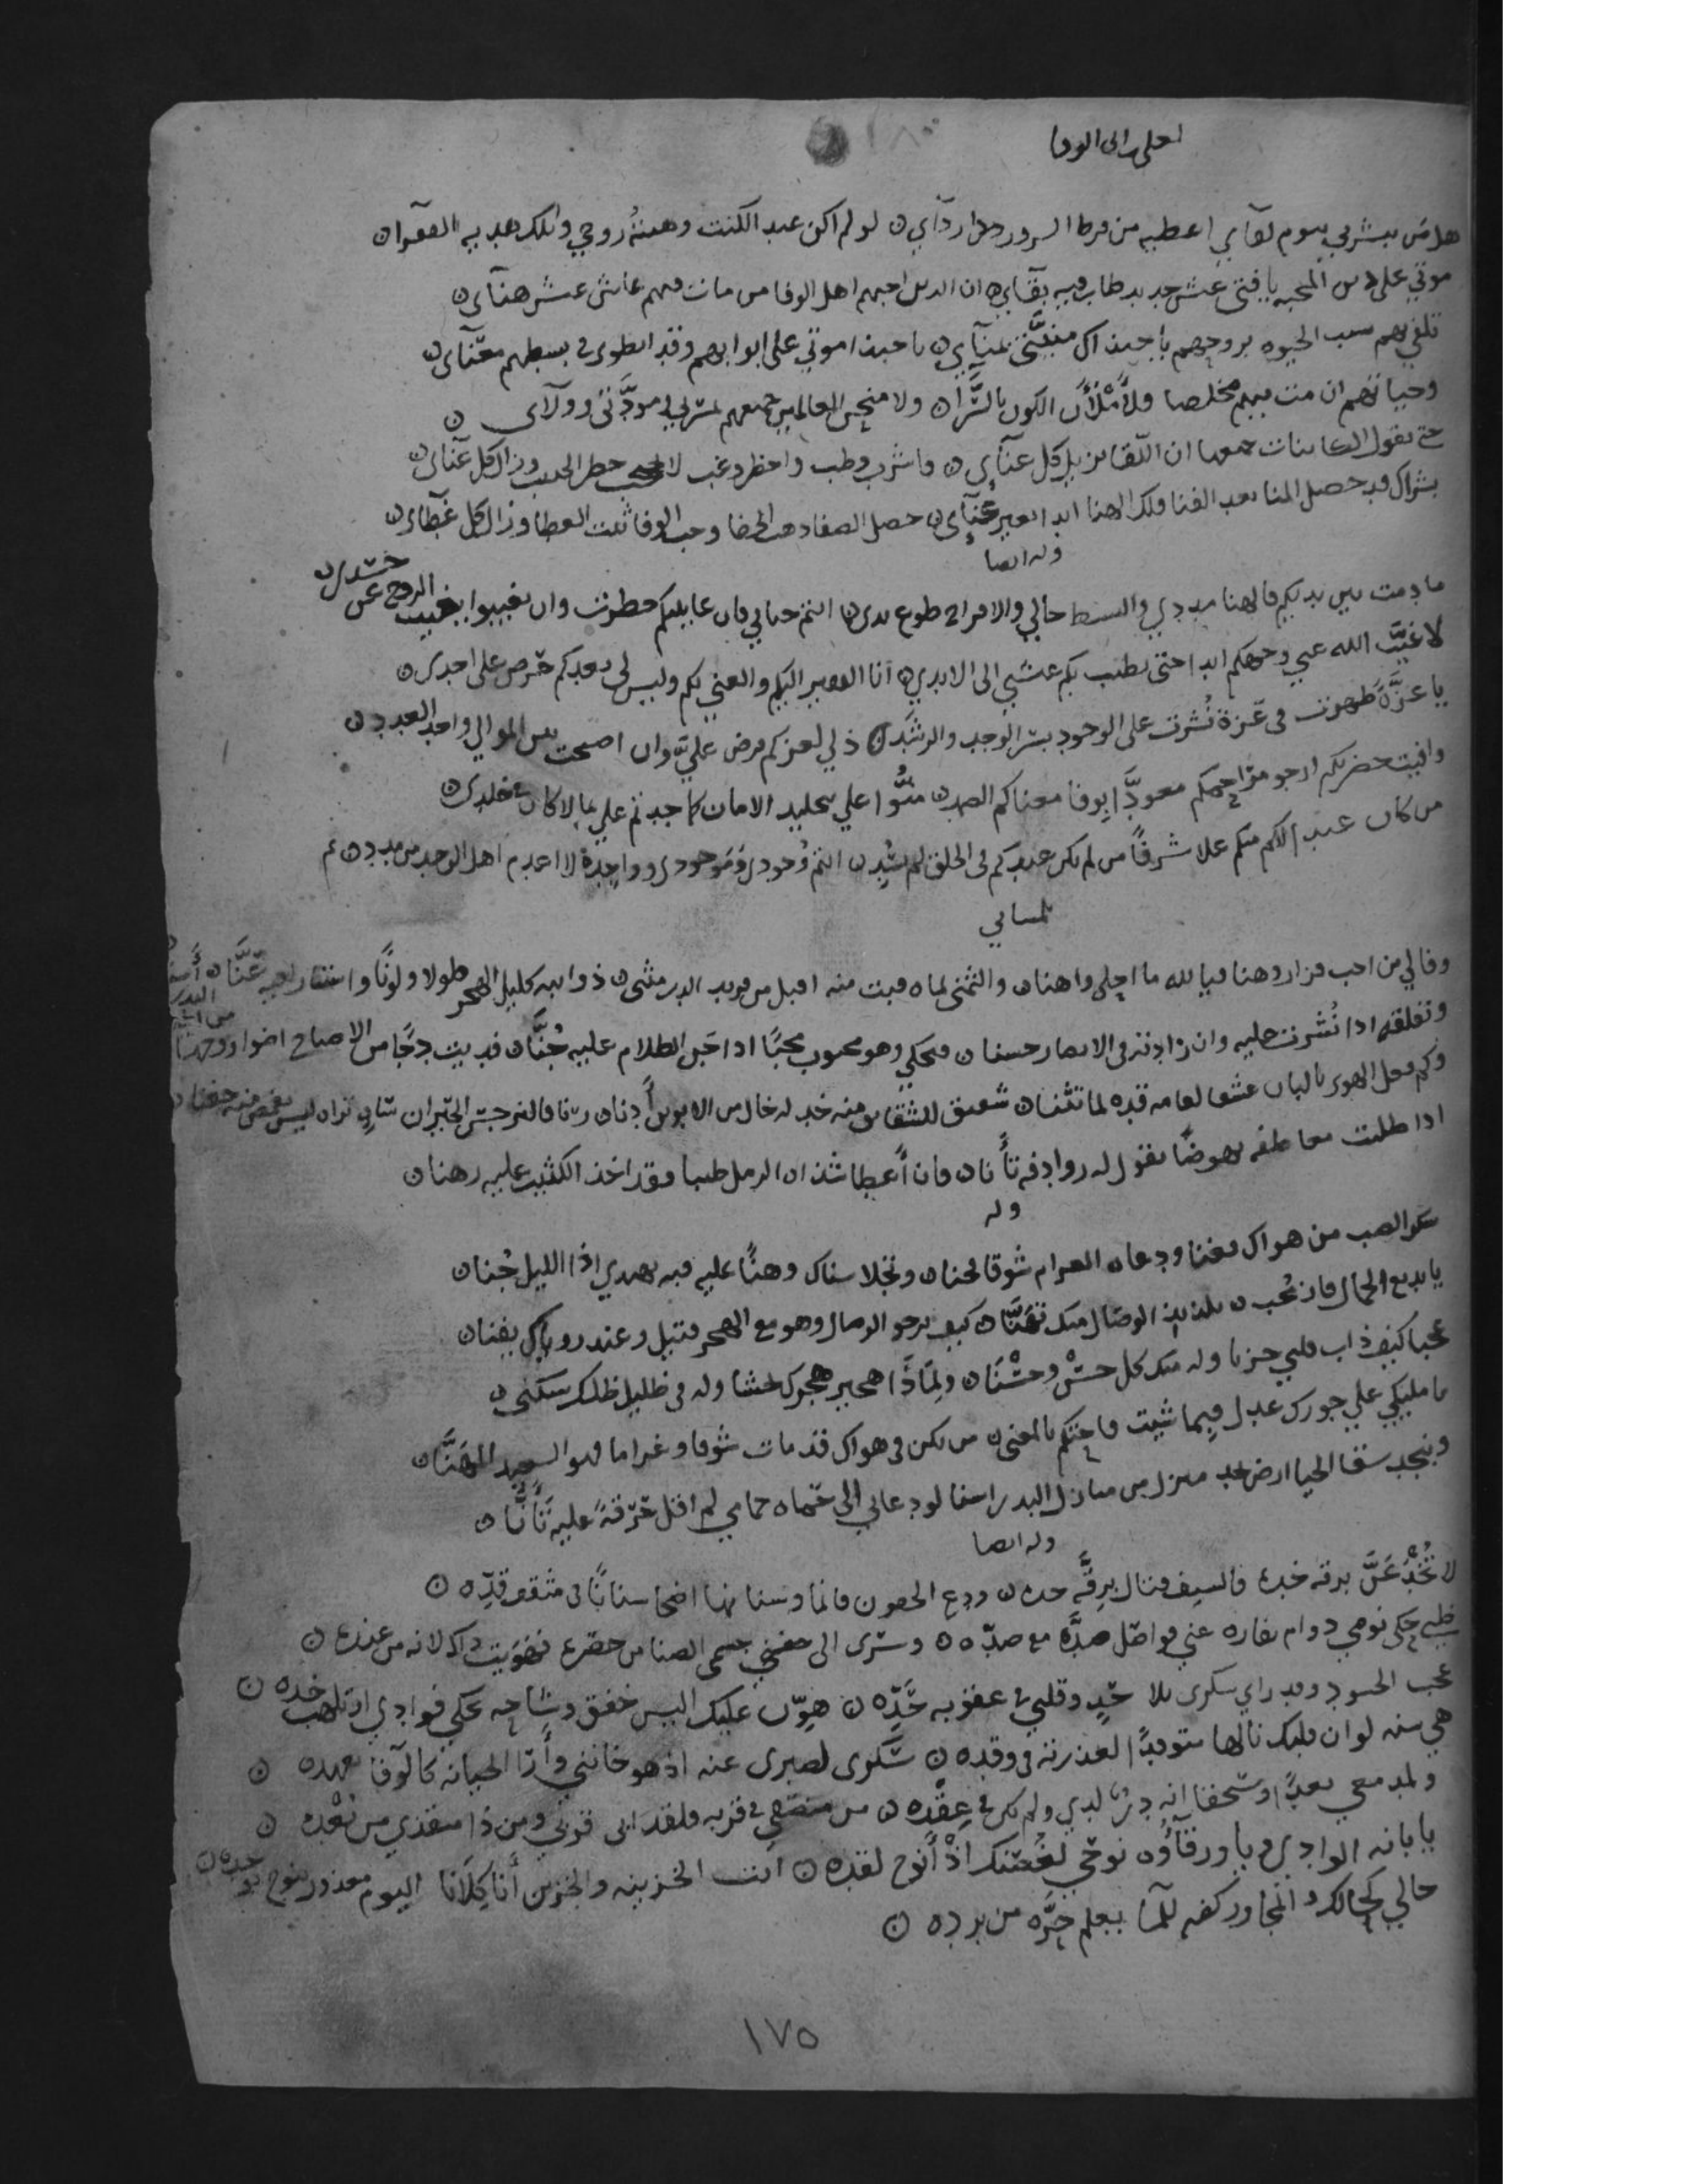 لعلي ابى الوفا
هل من يبشرني بيوم لقآي اعطيه من فرط السرور ردآي ن لو لم اكن عبدا لكنت وهبته روحي وتلك هدية الفقرا ن
موتي على دين المحبه يا فتى عيش جديد طاب فيه بقآي ن ان الدين احبهم اهل الوفا من مات فيهم عاش عيش هنآى ن
تلفي بهم سبب الحيوه بروحهم يا حبذاك منيتي بمنآي ن يا حبذا موتي على ابوابهم وقد انطوى في بسطهم معنآى ن
وحياتهم ان مت فيهم مخلصا فلأملأن الكون بالسرآ ن ولامنحن العالمين جميعهم بشرى في مودتي وولآى ن
حتى يقول الكاينات جميعها ان اللقا يزيل كل عنآى ن فاشرب وطب واحظر وغب لا تحتجب حظر الحبيب وزال كل عنآى ن
بشراك قد حصل المنا بعد الفنا ولك الهنا ابدا بغير عنآى ن حصل الصفا ذهب الجفا وجب الوفا ثبت العطا وزال كل غطآى ن
وله ايضا
ما دمت بين يديكم فالهنا مددي والبسط حالي والافراح طوع يدى ن انتم حياتي فان عاينتكم حظرت وان تغيبوا يغيب الروح عن جسدى ن
لا غيب الله عني وجهكم ابدا حتى يطيب بكم عيشي الى الابدي ن انا الفقير اليكم والغني بكم وليس لى بعدكم حرص على احدى ن
يا عزة ظهرت فى عزة نشرت على الوجود بشر الوجد والرشد ن ذلي لعزكم فرض علي وان اصبحت بين الموالي واحد العدد ن
وافيت حضرتكم ارجو مراحمكم معودا بوفا معناكم الصمد ن منوا علي بتخليد الامان كما جدتم علي بما لا كان في خلدى ن
من كان عبدا لكم منكم علا شرفا من لم يكن عبدكم في الخلق لم يسد ن انتم وجودى وموجودى وواجدة لا اعدم اهل الوجد من مدد ن
تلمساني
وفا لي من احب فزار وهنا فيا لله ما احلى واهنا ن والثمنى لماه فبت منه اقبل من فريد الدر مثنى ن ذوايبه كليل الهجر طولا ولونا
وتغلقه اذا نشرت عليه وان زادته في الابصار حسنا ن فيحكي وهو محبوب محبا اذا جن الظلام عليه جنا ن فديت دجا من الاصباح اضوا
وكم فعل الهوى بالبان عشقا لقامه قده لما تثنا ن شقيق للشقايق منه خد له خال من الابوين ادنا ن رنا فالنرجس الحيران
اذا طلبت معاطفه نهوضا يقول له روادفه تأنا ن فان اعطا شذاه الرمل طيبا فقد اخذ الكثيب عليه رهنا ن
وله
سكر الصب من هواك فغنا ودعاه الغرام شوقا فحنا ن وتجلا سناك وهنا عليه فيه يهدي اذا الليل جنا ن
يا بديع الجمال فاز محب ن بلذيذ الوصال منك تهنا ن كيف يرجو الوصال وهو مع الهجر قتيل وعند روياك يفنا ن
عجبا كيف ذاب قلبي حزنا وله منك كل حسن وحسنا ن ولماذا هجير هجرك يخشا وله في ظليل ظلك سكنى ن
يا مليكي علي جورك عدل فيما شيت فاحتكم يا لمغنى ن من يكن في هواك قد مات شوقا وغراما فهو السعيد المهنا ن
وبنجد سقا الحيا ارض نجد منزل من منازل البدر اسنا لو دعاني الى حماه حمامي لم اقل حرقة عليه تأنا ن
وله ايضا
لا تخدعن برقه خده فالسيف قتال برقه حده ن ودع الجفون فانما وسنانها اضحا سنانا في مثقف قده ن
ظبي حكى نومي دوام نفاره عني فواصل صده مع صده ن وسرى الى جفني جسمى الضنا من خصره فهويت ذاك لانه من عنده ن
عجب الحسود وقد راي سكرى بلا حد وقلبي في عقوبه حده ن هون عليك اليس خفق وشاحه يحكي فوادي او تلهب خده ن
هي سنه لو ان قلبك نالها متوقدا لعذرته في وقده ن شكوى لصبرى عنه اذ هو خانني وأرا الخيانه كالوفا بعهده ن
ولمدمعي بعدا وسحقا انه در لدي ولم يكن في عقده ن من منصفي في قربه فلقد ابى قربي ومن ذا منقذي من بعده ن
يا بانه الوادي ويا ورقآؤه نوحي لغصنك اذ أنوح لقده ن انت الحزينه والحزين أنا كلانا اليوم معذور بنوح لوجده ن
حالي كحالك والمجاور كفه للما يعلم حره من برده ن
١٧٥